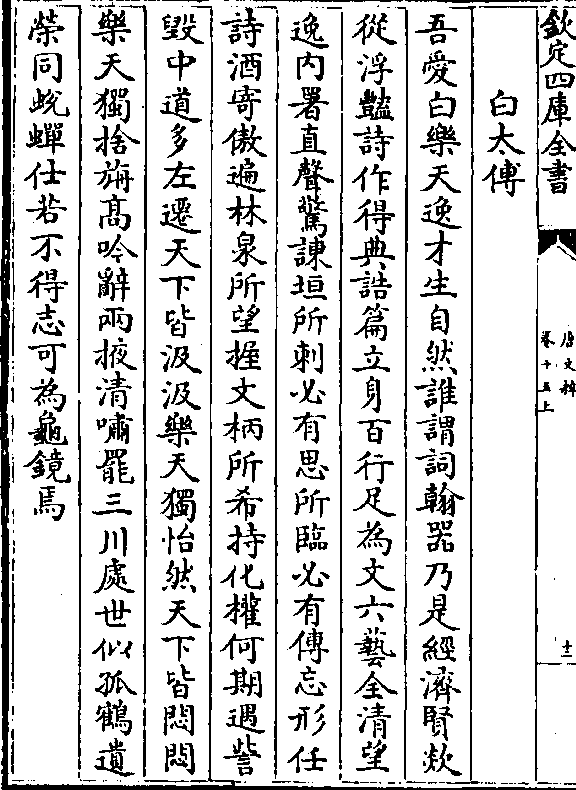 欽定四庫全書
唐文粹
卷十五上
十二
白太傅
吾愛白樂天逸才生自然誰謂詞翰器乃是經濟賢欻
從浮豔詩作得典誥篇立身百行足為文六藝全清望
逸內署直聲驚諫垣所刺必有思所臨必有傳忘形任
詩酒寄傲遍林泉所望握文柄所希持化權何期遇訾
毀中道多左遷天下皆汲汲樂天獨怡然天下皆悶悶
樂天獨捨旃高吟辭兩掖清嘯罷三川處世似孤鶴遺
榮同蛻蟬仕若不得志可為龜鏡焉